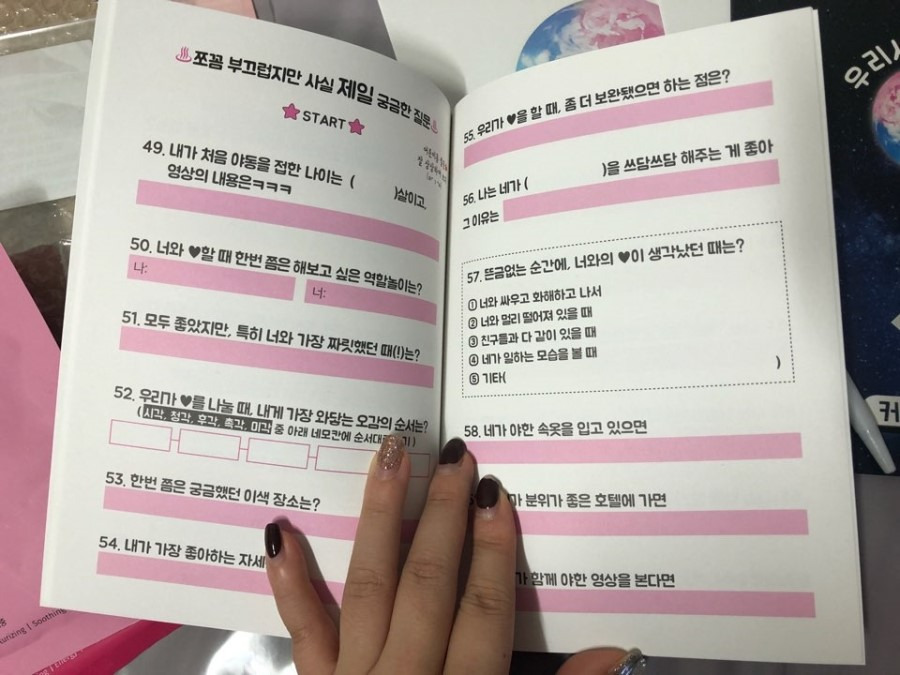 ♨쪼꼼 부끄럽지만 사실 제일 궁금한 질문♨
★START★
49. 내가 처음 야동을 접한 나이는 ( )살이고,
영상의 내용은ㅋㅋㅋ
50. 너와 ♥할 때 한번 쯤은 해보고 싶은 역할놀이는?
나: 너:
51. 모두 좋았지만, 특히 너와 가장 짜릿했던 때(!)는?
52. 우리가 ♥를 나눌 때, 내게 가장 와닿는 오감의 순서는?
(시각, 청각, 후각, 촉각, 미각 중 아래 네모칸에 순서대 기)
53. 한번 쯤은 궁금했던 이색 장소는?
54. 내가 가장 좋아하는 자세
55. 우리가 ♥을 할 때, 좀 더 보완됐으면 하는 점은?
56. 나는 네가 ( )을 쓰담쓰담 해주는 게 좋아
그 이유는
57. 뜬금없는 순간에, 너와의 ♥이 생각났던 때는?
① 너와 싸우고 화해하고 나서
② 너와 멀리 떨어져 있을 때
③ 친구들과 다 같이 있을 때
④ 네가 일하는 모습을 볼 때
⑤ 기타( )
58. 네가 야한 속옷을 입고 있으면
분위가 좋은 호텔에 가면
가 함께 야한 영상을 본다면
우리
커
Soothing